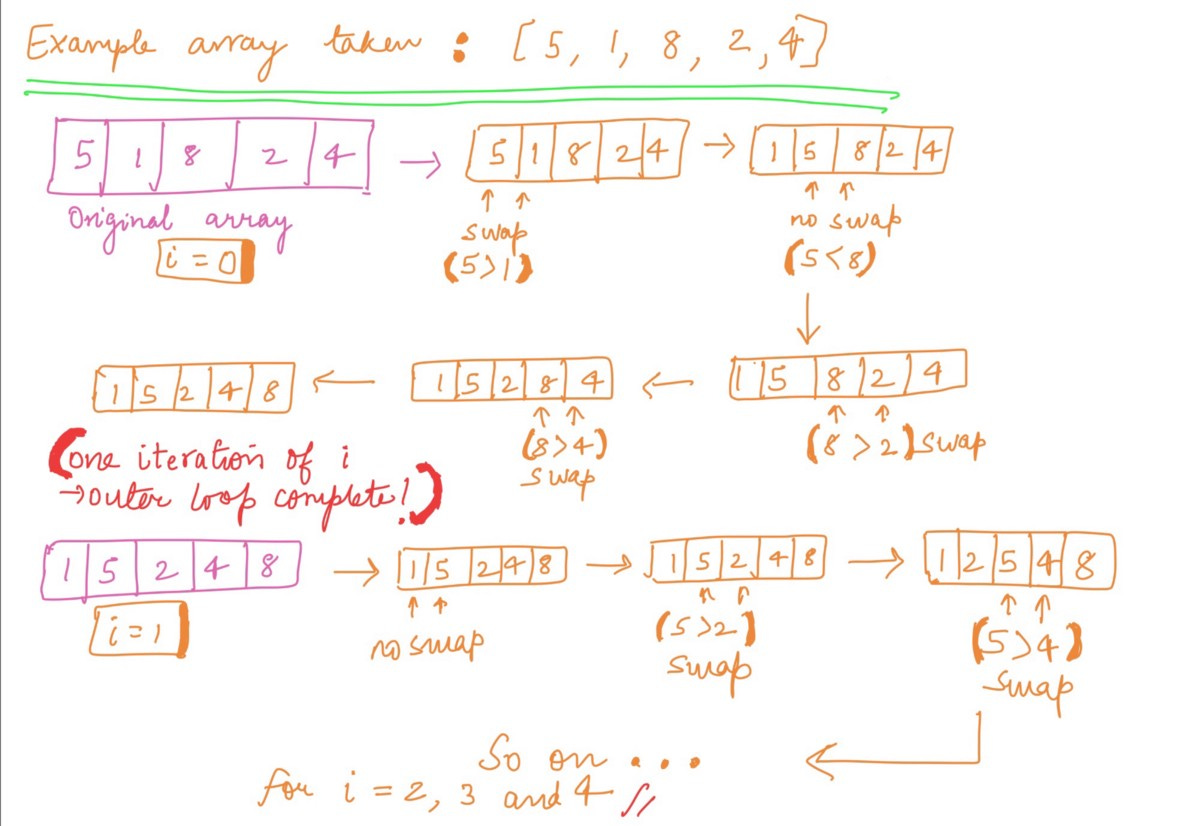 Example array taken : [5, 1, 8, 2, 4]
5 1 8 2 4 → 5 1 8 2 4 → 1 5 8 2 4
Original array
i = 0
↑ ↑
swap
(5>1)
↑ ↑
no swap
(5<8)
↓
1 5 2 4 8 ← 1 5 2 8 4 ← 1 5 8 2 4
↑ ↑
(8>4)
swap
↑ ↑
(8>2) swap
(one iteration of i
→ outer loop complete!)
1 5 2 4 8 → 1 5 2 4 8 → 1 5 2 4 8 → 1 2 5 4 8
i = 1
↑ ↑
no swap
↑ ↑
(5>2)
swap
↑ ↑
(5>4)
swap
So on ...
for i = 2, 3 and 4 //